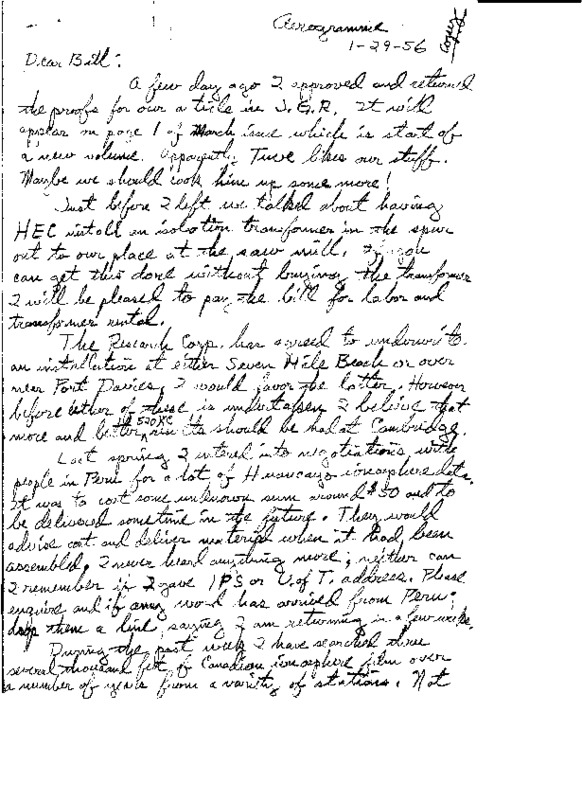 Aerogramme
copy
1-29-56
Dear Bill:
A few day ago I approved and returned
the proofs for our article in J.G.R. It will
appear on page 1 of March issue which is start of
a new volume. Apparently Tuve likes our stuff.
Maybe we should cook him up some more!
Just before I left we talked about having
HEC install an isolation transformer in the spur
out to our place at the saw mill. If you
can get this done without buying the transformer
I will be pleased to pay the bill for labor and
transformer rental.
The Research Corp. has agreed to underwrite
an installation at either Seven Mile Beach or over
near Port Davies, I would favor the latter. However
before either of these is undertaken I believe that
more and better 520KC results should be had at Cambridge.
Last spring I entered into negotiations with
people in Peru for a lot of Huancayo ionosphere data.
It was to cost some unknown sum around $50 and to
be delivered sometime in the future. They would
advise cost and deliver material when it had been
assembled. I never heard anything more; neither can
I remember if I gave IPS or U. of T. address. Please
enquire and if any word has arrived from Peru;
drop them a line, saying I am returning in a few weeks.
During the past week I have searched thru
several thousand feet of Canadian ionosphere film over
a number of years from a variety of stations. Not